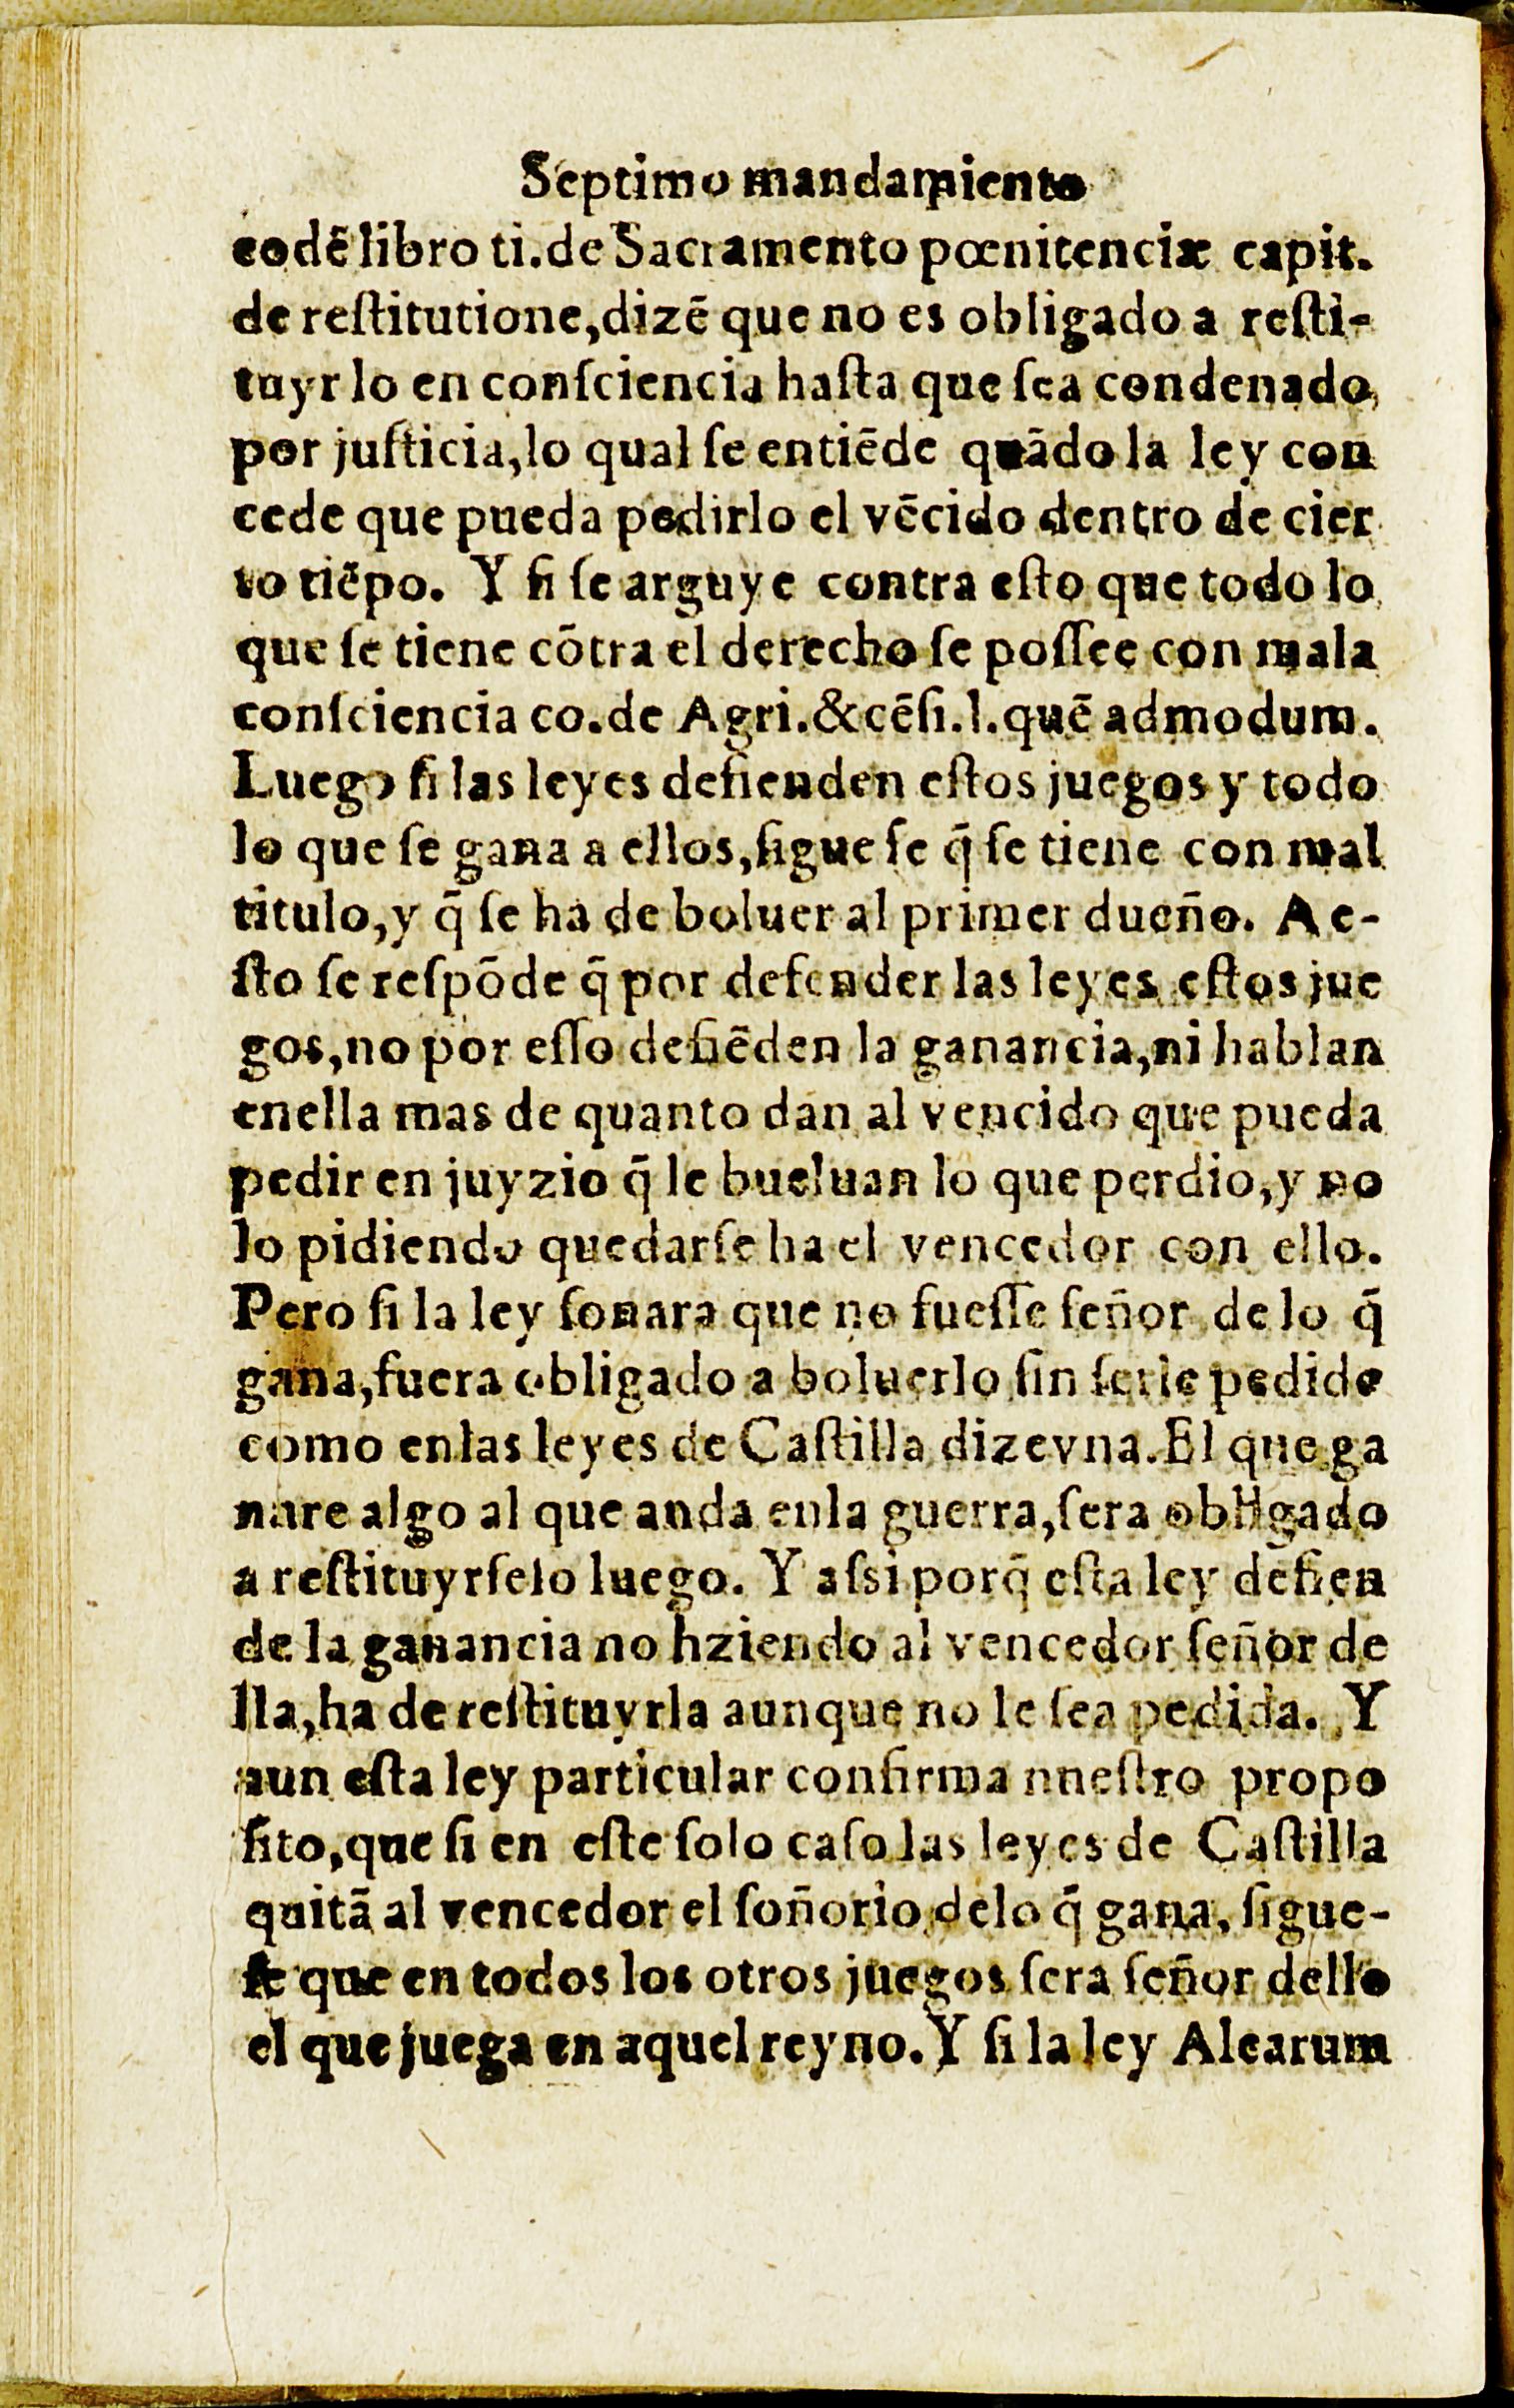 Septimo mandamiento
eodē libro ti.de Sacramento pœnitenciæ capit.
de reſtitutione,dizē que no es obligado a reſti-
tuyr lo en conſciencia haſta que ſea condenado,
por juſticia,lo qual ſe entiēde quādo la ley con
cede que pueda pedirlo el vēcido dentro de cier
to tiēpo. Y ſi ſe arguye contra eſto que todo lo
que ſe tiene cōtra el derecho ſe poſſee con mala
conſciencia co.de Agri.&cēſi.l.quē admodum.
Luego ſi las leyes defienden eſtos juegos y todo
lo que ſe gana a ellos,ſigue ſe q̄ ſe tiene con mal
titulo,y q̄ ſe ha de boluer al primer dueño. A e-
ſto ſe reſpōde q̄ por defender las leyes eſtos jue
gos,no por eſſo defiēden la ganancia,ni hablan
enella mas de quanto dan al vencido que pueda
pedir en juyzio q̄ le bueluan lo que perdio,y no
lo pidiendo quedarſe ha el vencedor con ello.
Pero ſi la ley ſonara que no fueſſe ſeñor de lo q̄
gana,fuera obligado a boluerlo ſin ſerle pedido
como enlas leyes de Caſtilla dize vna.El que ga
nare algo al que anda enla guerra,ſera obligado
a reſtituyrſelo luego. Y aſsi porq̄ eſta ley defien
de la ganancia no hziendo al vencedor ſeñor de
lla,ha de reſtituyrla aunque no le ſea pedida. Y
aun eſta ley particular confirma nneſtro propo
ſito,que ſi en eſte ſolo caſo las leyes de Caſtilla
quitā al vencedor el ſoñorio delo q̄ gana, ſigue-
ſe que en todos los otros juegos ſera ſeñor dello
el que juega en aquel reyno. Y ſi la ley Alearum